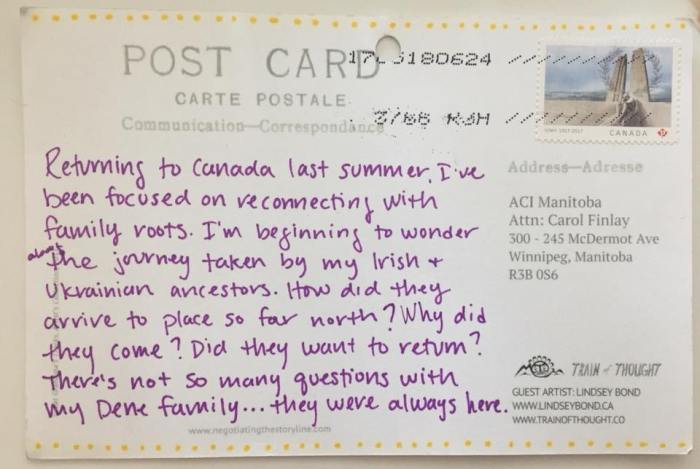 POST CARD
CARTE POSTALE
Communication—Correspondance
180624
CANADA
P
Returning to Canada last summer, I've
been focused on reconnecting with
family roots. I'm beginning to wonder
about
the journey taken by my Irish +
Ukrainian ancestors. How did they
arrive to place so far north? Why did
they come? Did they want to return?
There's not so many questions with
my Dene family... they were always here.
www.negotiatingthestoryline.com
Address—Adresse
ACI Manitoba
Attn: Carol Finlay
300 - 245 McDermot Ave
Winnipeg, Manitoba
R3B 0S6
TRAIN of THOUGHT
GUEST ARTIST: LINDSEY BOND
WWW.LINDSEYBOND.CA
WWW.TRAINOFTHOUGHT.CO